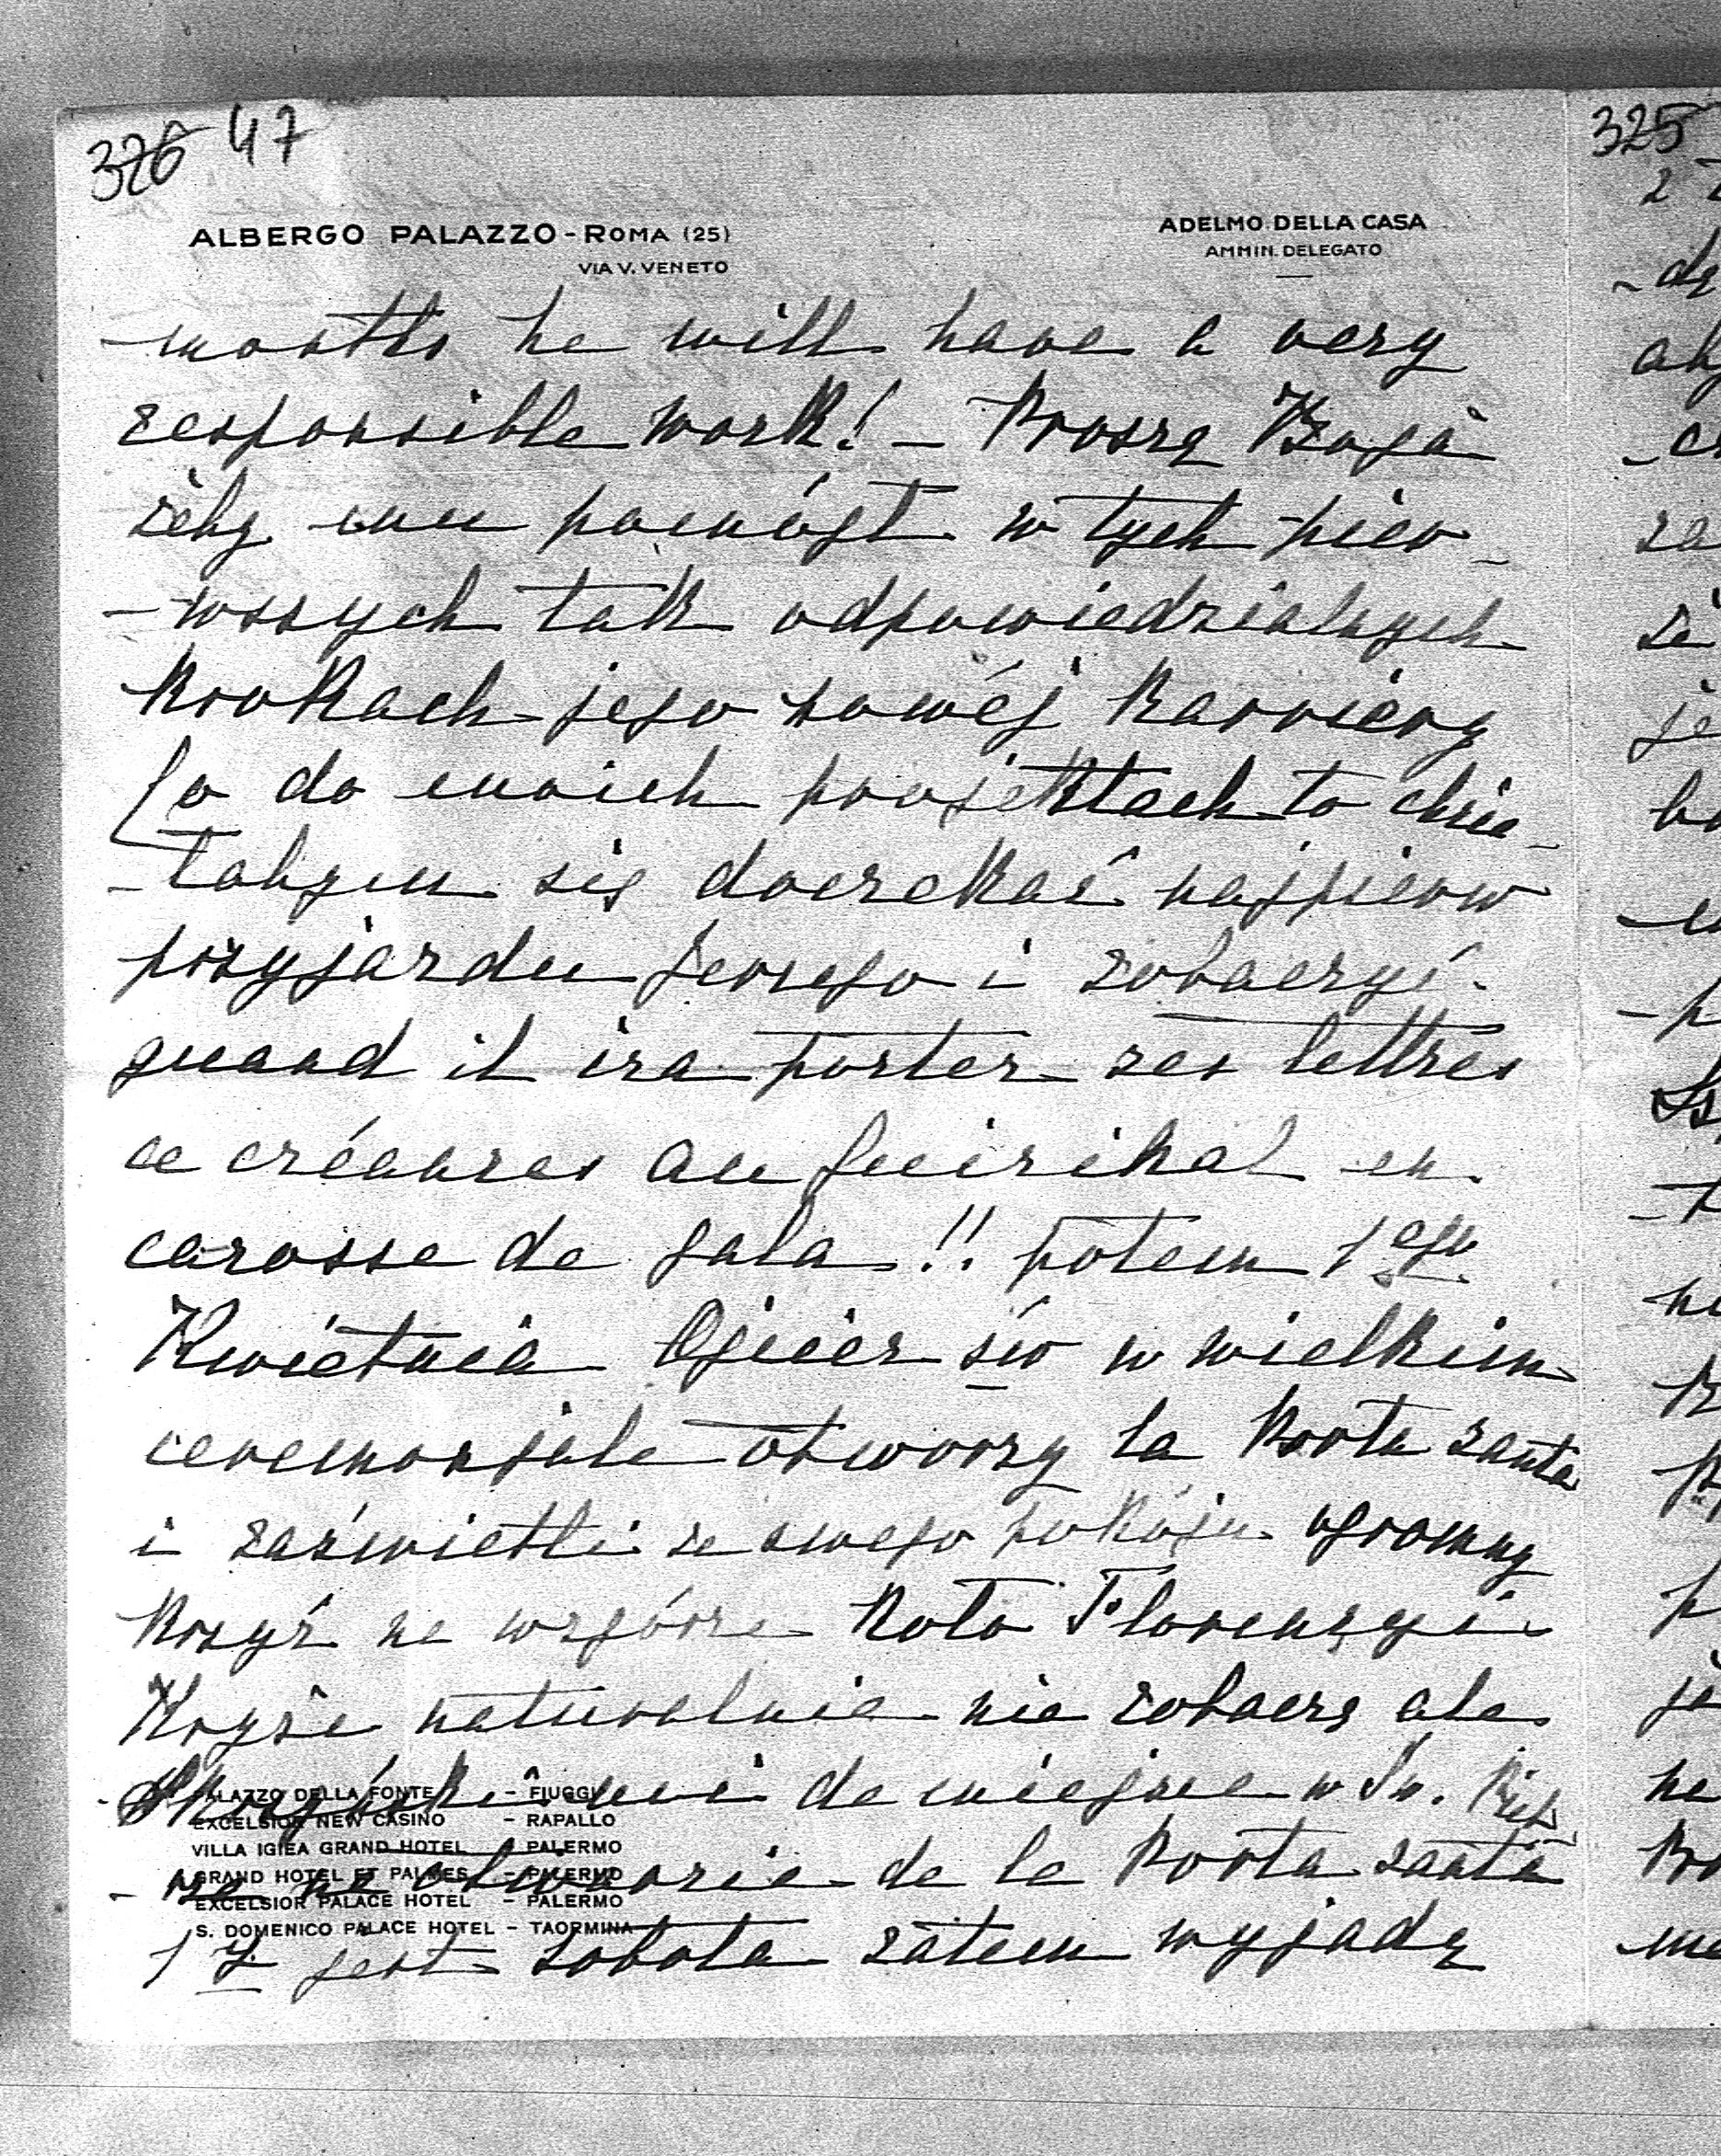 326 47
ALBERGO PALAZZO - ROMA (25)
VIA V. VENETO
ADELMO DELLA CASA
AMMIN. DELEGATO
months he will have a very
responsible work! – Proszę Boga
żeby mu pomógł w tych pier-
-wszych tak odpowiedzialnych
krokach jego nowéj karriery
Co do moich projektach to chcia-
-łabym się doczekać najpierw
przyjazdu Jerzego i zobaczyć
quand il ira porter ses lettres
de créances au Quirinal en
carosse de gala!! potem 1ego
Kwietnia Ojciec św w wielkim
ceremonjale otworzy la Porta santa
i zaświetli ze swego pokóju ogromny
Krzyż na wzgórze Koło Florencyi
Krzyża naturalnie nie zobaczę ale
Skrzyński mi da miejsce w Św. Piet-
-rze na otwarcie de la Porta santa
1y jest sobota zatem wyjadę
PALAZZO DELLA FONTE – FIUGGI
EXCELSIOR NEW CASINO – RAPALLO
VILLA IGIEA GRAND HOTEL – PALERMO
GRAND HOTEL ET PALMES – PALERMO
EXCELSIOR PALACE HOTEL – PALERMO
S. DOMENICO PALACE HOTEL – TAORMINA
325
2